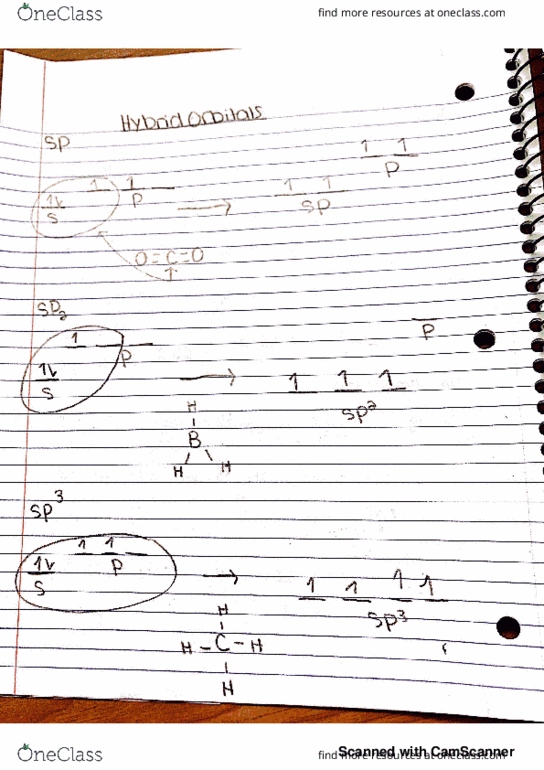 OneClass
find more resources at oneclass.com
Hybrid Orbitals
sp
1 1
p
1 1
1v p
s
1 1
sp
O=C=O
↑
sp₂
p
1
p
1v
s
1 1 1
sp²
H
B
H H
sp³
1 1
1v p
s
1 1 1 1
sp³
H
H-C-H
H
OneClass
find more resources at oneclass.com
Scanned with CamScanner